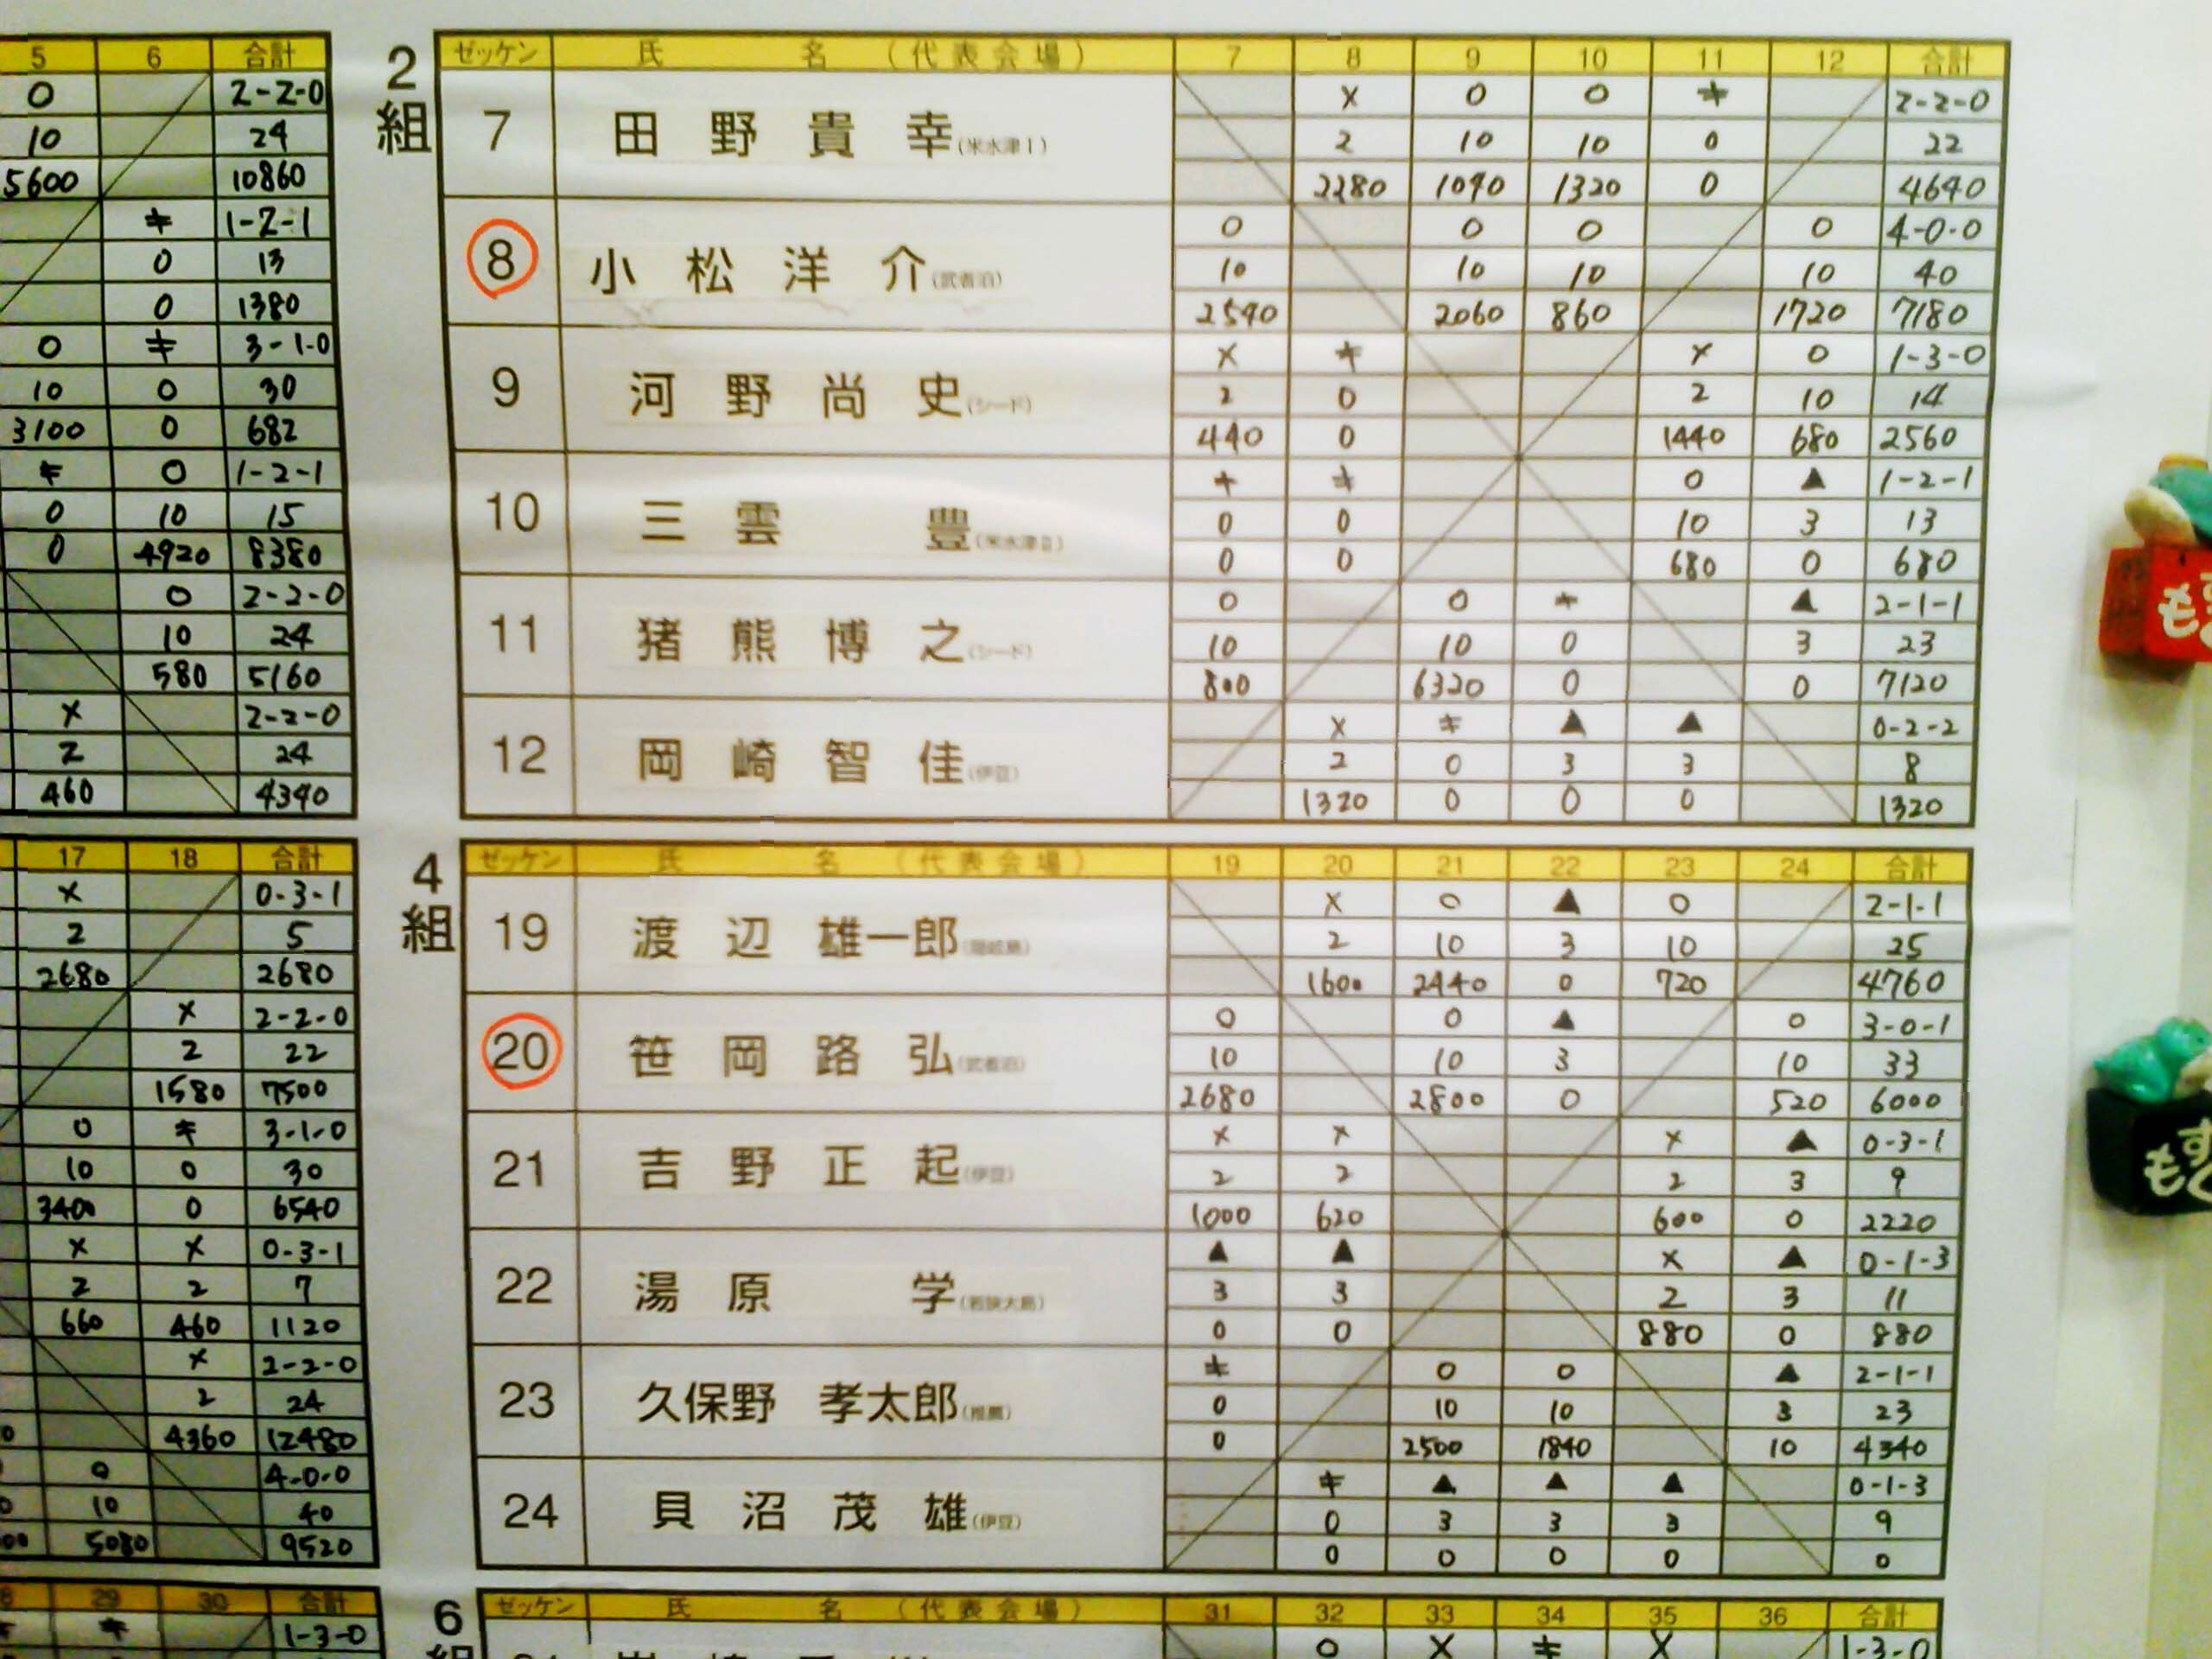 5 6 合計
0 2-2-0
10 24
5600 10860
キ 1-2-1
0 13
0 1380
0 キ 3-1-0
10 0 30
3100 0 682
キ 0 1-2-1
0 10 15
0 4920 8380
0 2-2-0
10 24
580 5160
× 2-2-0
2 24
460 4340
2組
ゼッケン 氏 名 (代表会場) 7 8 9 10 11 12 合計
7 田野貴幸(米水津I) × 0 0 キ 2-2-0
2 10 10 0 22
2280 1040 1320 0 4640
8 小松洋介(武者泊) 0 0 0 0 4-0-0
10 10 10 10 40
2540 2060 860 1720 7180
9 河野尚史(シード) × キ × 0 1-3-0
2 0 2 10 14
440 0 1440 680 2560
10 三雲 豊(米水津II) キ キ 0 ▲ 1-2-1
0 0 10 3 13
0 0 680 0 680
11 猪熊博之(シード) 0 0 キ ▲ 2-1-1
10 10 0 3 23
800 6320 0 0 7120
12 岡崎智佳(伊豆) × キ ▲ ▲ 0-2-2
2 0 3 3 8
1320 0 0 0 1320
17 18 合計
× 0-3-1
2 5
2680 2680
× 2-2-0
2 22
1580 7500
0 キ 3-1-0
10 0 30
3400 0 6540
× × 0-3-1
2 2 7
660 460 1120
× 2-2-0
2 24
4360 12480
0 4-0-0
10 40
5080 9520
4組
ゼッケン 氏 名 (代表会場) 19 20 21 22 23 24 合計
19 渡辺雄一郎(隠岐島) × 0 ▲ 0 2-1-1
2 10 3 10 25
1600 2440 0 720 4760
20 笹岡路弘(武者泊) 0 0 ▲ 0 3-0-1
10 10 3 10 33
2680 2800 0 520 6000
21 吉野正起(伊豆) × × × ▲ 0-3-1
2 2 2 3 9
1000 620 600 0 2220
22 湯原 学(若狭大島) ▲ ▲ × ▲ 0-1-3
3 3 2 3 11
0 0 880 0 880
23 久保野孝太郎(推薦) キ 0 0 ▲ 2-1-1
0 10 10 3 23
0 2500 1840 10 4340
24 貝沼茂雄(伊豆) キ ▲ ▲ ▲ 0-1-3
0 3 3 3 9
0 0 0 0 0
29 30 合計
キ 1-3-0
6
ゼッケン 氏 名 (代表会場) 31 32 33 34 35 36 合計
0 × キ × 1-3-0